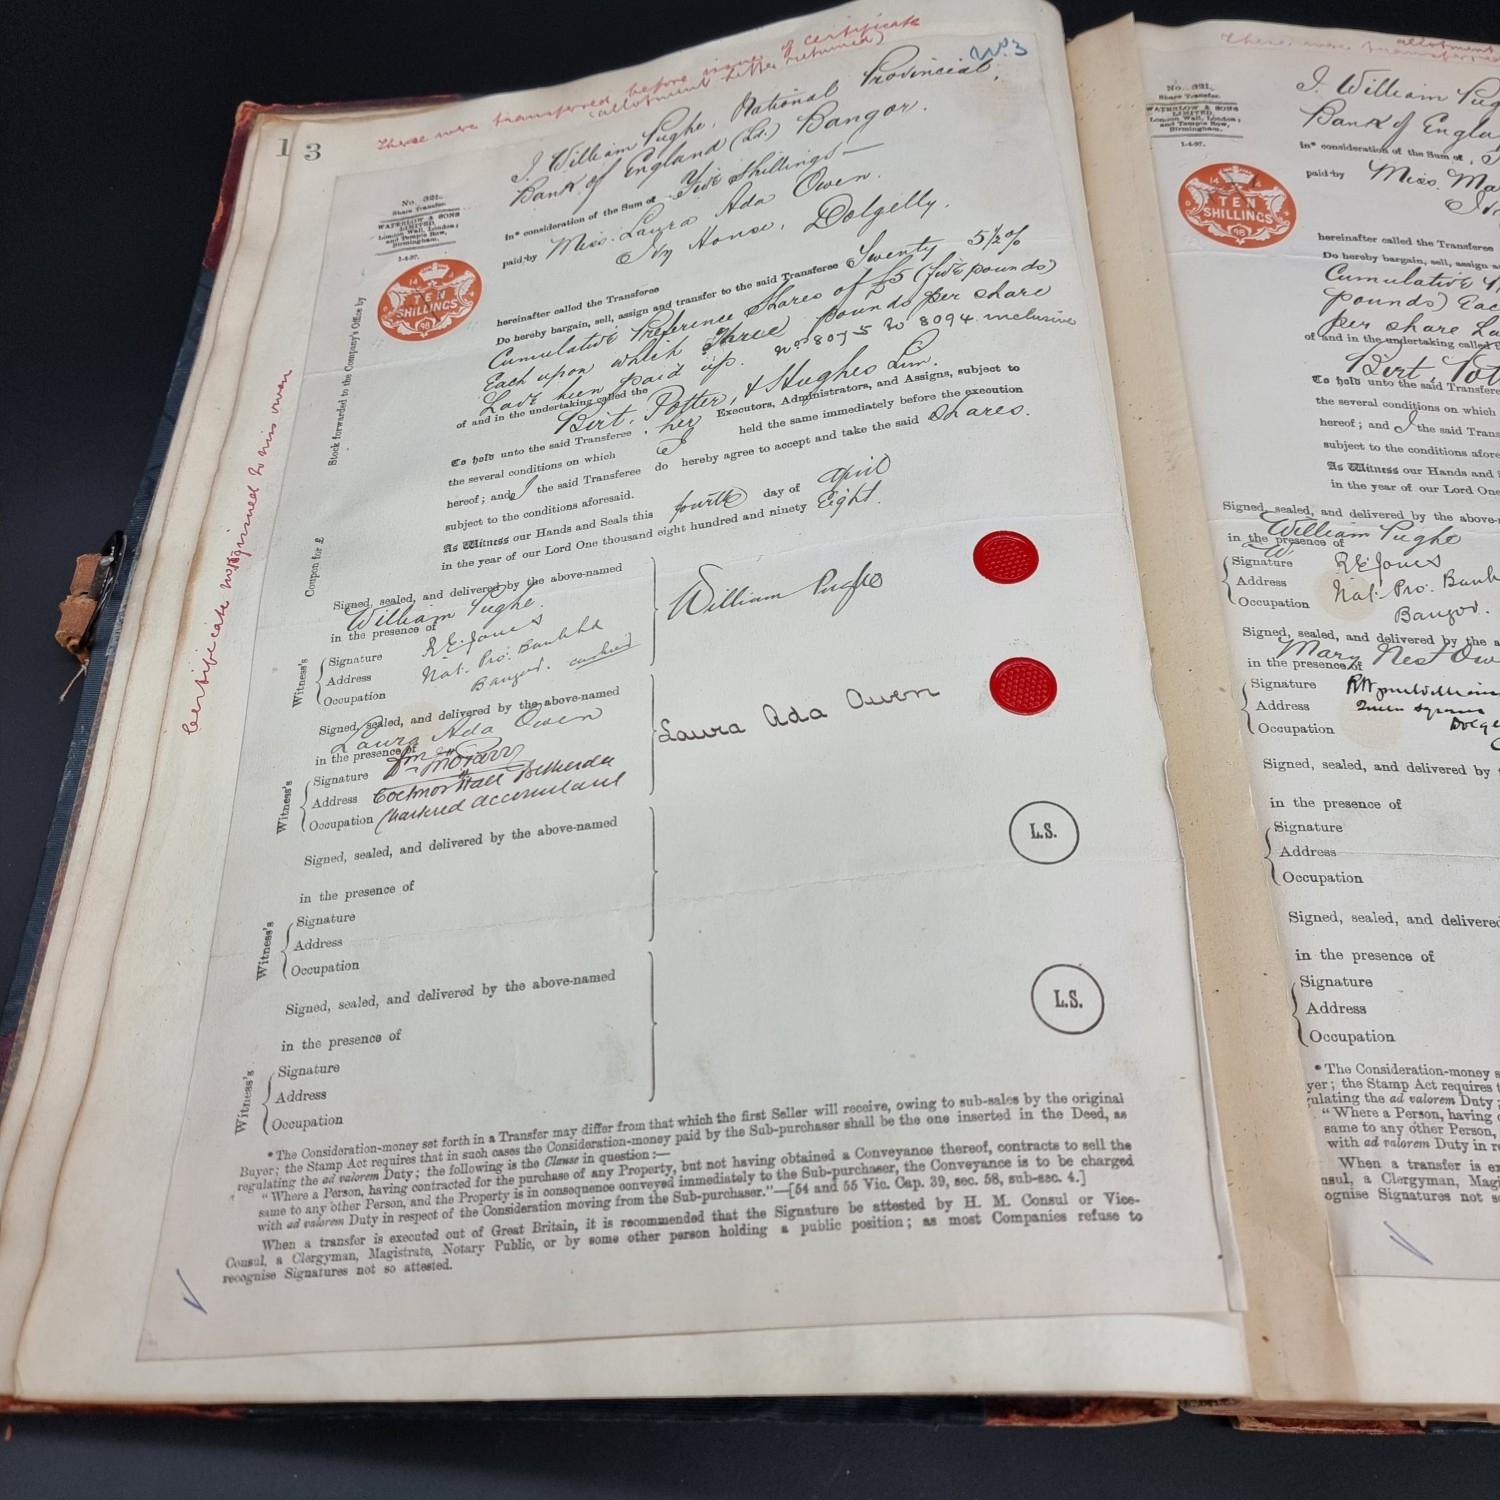 These were transferred before issue of certificate
(allotment letter returned)
No. 3
1 3
I. William Pughe, National Provincial,
Bank of England (Ld.) Bangor.
in* consideration of the Sum of Five Shillings
paid by Miss. Laura Ada Owen.
Ivy House, Dolgelly.
hereinafter called the Transferee
Do hereby bargain, sell, assign and transfer to the said Transferee Twenty 5½%
Cumulative Preference Shares of £5 (five pounds)
Each upon which Three pounds per share
have been paid up. Nos 8075 to 8094 inclusive
of and in the undertaking called the
Birt, Potter, & Hughes Lim.
To hold unto the said Transferee her Executors, Administrators, and Assigns, subject to
the several conditions on which I held the same immediately before the execution
hereof; and I the said Transferee do hereby agree to accept and take the said Shares.
subject to the conditions aforesaid.
As Witness our Hands and Seals this fourth day of April
in the year of our Lord One thousand eight hundred and ninety Eight.
No. 321.
Share Transfer.
WATERLOW & SONS
LIMITED,
London Wall, London;
and Temple Row,
Birmingham.
1-4-97.
TEN
SHILLINGS
98
Stock forwarded to the Company's Office by
Coupon for £
Certificate assigned to Miss Owen
Signed, sealed, and delivered by the above-named
William Pughe.
in the presence of
Witness's
Signature R.E. Jones
Address Nat. Pro. Bank Ld
Bangor.
Occupation cashier
William Pughe
Signed, sealed, and delivered by the above-named
Laura Ada Owen
in the presence of
Witness's
Signature
Address Coetmor Hall Bethesda
Occupation Chartered Accountant
Laura Ada Owen
Signed, sealed, and delivered by the above-named
in the presence of
Witness's
Signature
Address
Occupation
L.S.
Signed, sealed, and delivered by the above-named
in the presence of
Witness's
Signature
Address
Occupation
L.S.
*The Consideration-money set forth in a Transfer may differ from that which the first Seller will receive, owing to sub-sales by the original
Buyer; the Stamp Act requires that in such cases the Consideration-money paid by the Sub-purchaser shall be the one inserted in the Deed, as
regulating the ad valorem Duty; the following is the Clause in question:—
"Where a Person, having contracted for the purchase of any Property, but not having obtained a Conveyance thereof, contracts to sell the
same to any other Person, and the Property is in consequence conveyed immediately to the Sub-purchaser, the Conveyance is to be charged
with ad valorem Duty in respect of the Consideration moving from the Sub-purchaser."—[54 and 55 Vic. Cap. 39, sec. 58, sub-sec. 4.]
When a transfer is executed out of Great Britain, it is recommended that the Signature be attested by H. M. Consul or Vice-
Consul, a Clergyman, Magistrate, Notary Public, or by some other person holding a public position; as most Companies refuse to
recognise Signatures not so attested.
These were transferred
allotment
No. 321.
Share Transfer.
WATERLOW & SONS
LIMITED,
London Wall, London;
and Temple Row,
Birmingham.
1-4-97.
TEN
SHILLINGS
98
I. William Pug
Bank of Engla
in* consideration of the Sum of
paid by Miss. Ma
hereinafter called the Transferee
Do hereby bargain, sell, assign a
Cumulative
pounds) Eac
per share
of and in the undertaking called
Birt, Pott
To hold unto the said Transfere
the several conditions on which
hereof; and I the said Trans
subject to the conditions afore
As Witness our Hands and
in the year of our Lord One
Signed, sealed, and delivered by the above-n
William Pughe
in the presence of
Signature R.E. Jones
Address Nat. Pro. Bank
Bangor.
Occupation
Signed, sealed, and delivered by the a
Mary Nest Ow
in the presence of
Signature
Address
Occupation
Signed, sealed, and delivered by
in the presence of
Signature
Address
Occupation
Signed, sealed, and delivered
in the presence of
Signature
Address
Occupation
*The Consideration-money s
yer; the Stamp Act requires t
ulating the ad valorem Duty;
"Where a Person, having c
same to any other Person,
with ad valorem Duty in re
When a transfer is ex
nsul, a Clergyman, Magi
ognise Signatures not so